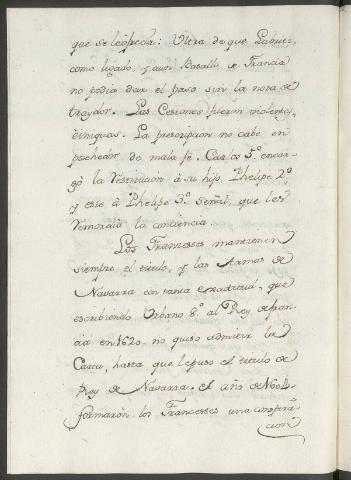 que se le ofrecia: Ultra de que Labrit,
como ligado, y aun Basallo de Francia
no podia dar el paso sin la nota de
traydor. Las Cesiones fueron violentas,
é iniquas. La prescripcion no cabe en
posehedor de mala fé. Carlos 5.º encar-
gó la restitucion à su hijo Phelipe 2.º
y este à Phelipe 3.º señal, que les
remordia la conciencia.
Los Franceses mantienen
siempre el titulo, y las Armas de
Navarra con tanta exactitud, que
escribiendo Urbano 8.º al Rey de fran-
cia en 1620. no quiso admitir la
Carta, hasta que le puso el titulo de
Rey de Navarra. el año de
formaron los Franceses una conspira-
cion